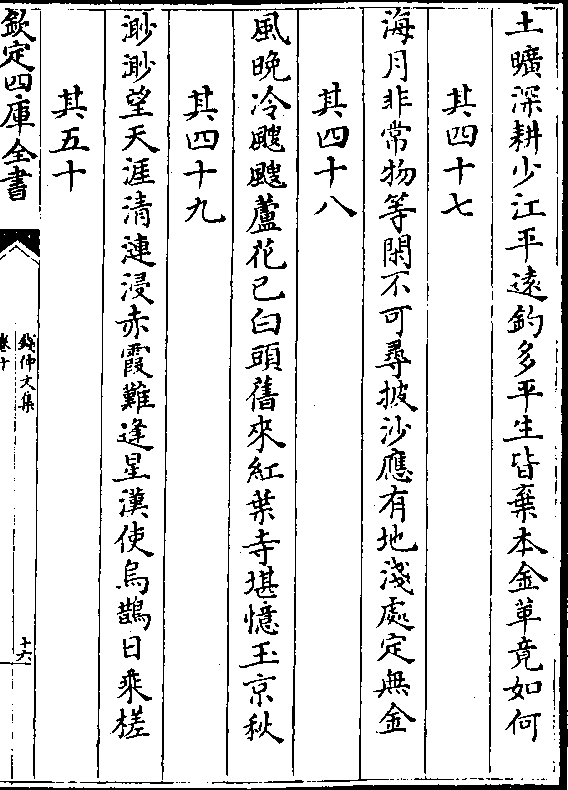 土曠深耕少江平遠釣多平生皆棄本金革竟如何
其四十七
海月非常物等閑不可尋披沙應有地淺處定無金
其四十八
風晚冷颼颼蘆花已白頭舊來紅葉寺堪憶玉京秋
其四十九
渺渺望天涯清漣浸赤霞難逢星漢使烏鵲日乘槎
其五十
欽定四庫全書
錢仲文集
卷十
十六